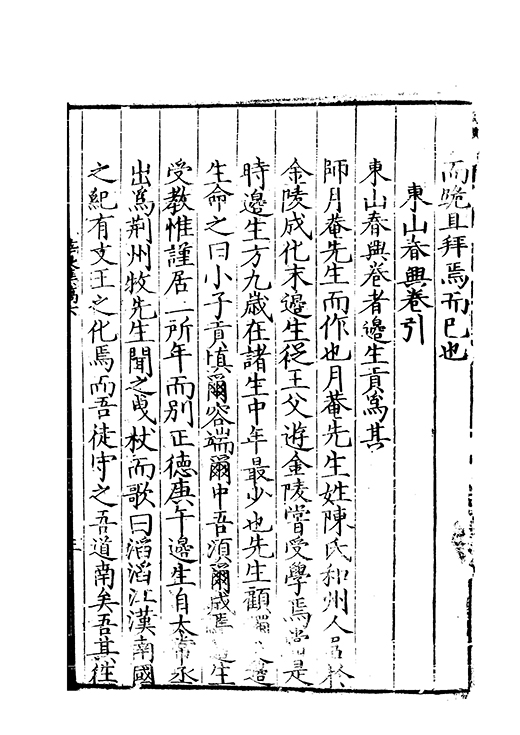 而晚且拜焉而已也
東山春興卷引
東山春興卷者邊生貢爲其
師月菴先生而作也月菴先生姓陳氏和州人居於
金陵成化末邊生從王父遊金陵嘗受學焉當是
時邊生方九歲在諸生中年最少也先生顧獨
生命之曰小子貢慎爾容端爾中吾須爾成 邊生
受教惟謹居二所年而別正德庚午邊生自太常丞
出爲荆州牧先生聞之曳杖而歌曰滔滔江漢南國
之紀有文王之化焉而吾徒守之吾道南矣吾其往